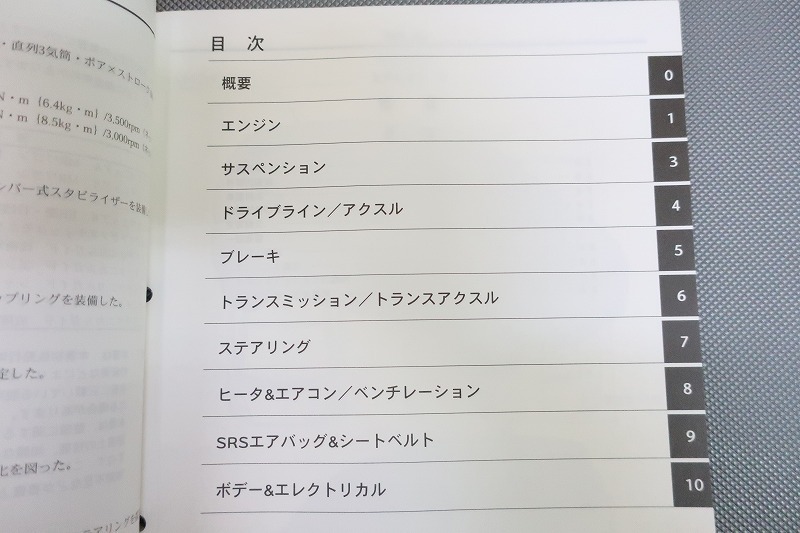 ・直列3気筒・ボア×ストロー
N・m {6.4kg・m} /3,500rpm
N・m {8.5kg・m} /3,000rpm
ンバー式スタビライザーを装備
ップリングを装備した。
定した。
化を図った。
テアリングを
目 次
概要 0
エンジン 1
サスペンション 3
ドライブライン／アクスル 4
ブレーキ 5
トランスミッション／トランスアクスル 6
ステアリング 7
ヒータ&エアコン／ベンチレーション 8
SRSエアバッグ&シートベルト 9
ボデー&エレクトリカル 10